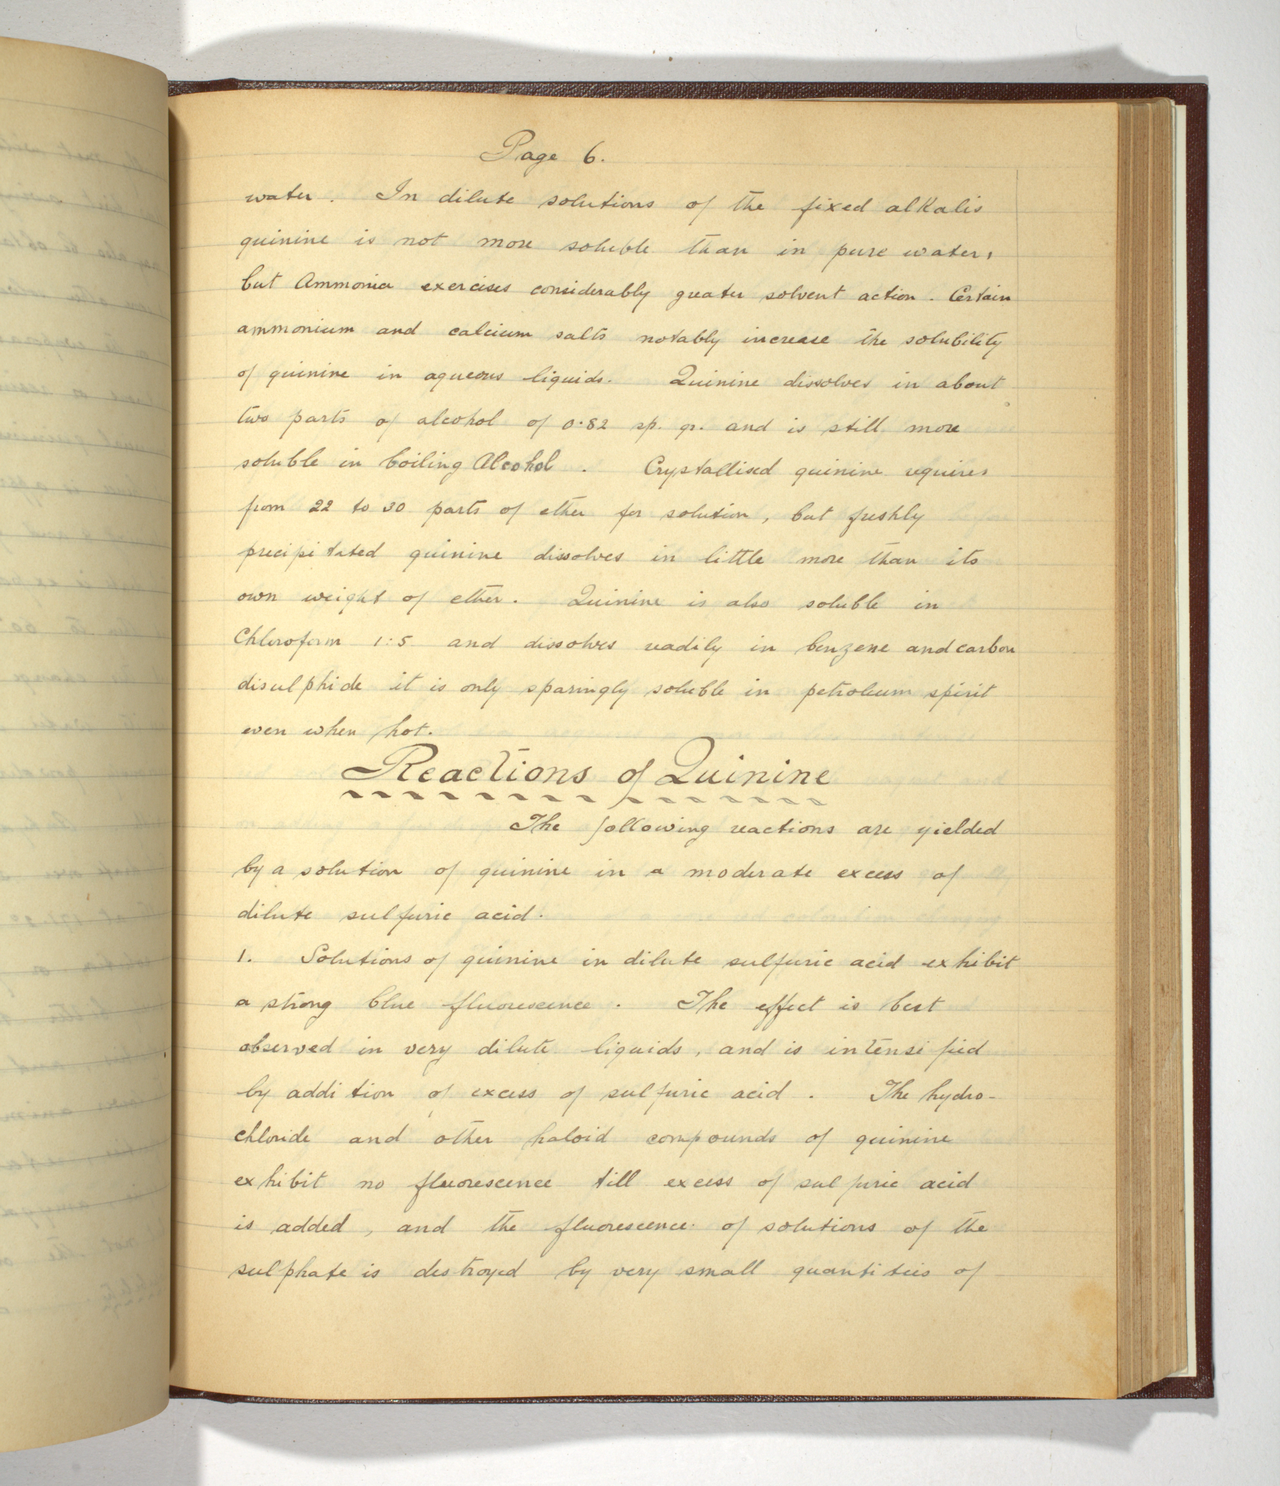 Page 6.
water. In dilute solutions of the fixed alkalis
quinine is not more soluble than in pure water,
but Ammonia exercises considerably greater solvent action. Certain
ammonium and calcium salts notably increase the solubility
of quinine in aqueous liquids. Quinine dissolves in about
two parts of alcohol of 0.82 sp. gr. and is still more
soluble in boiling Alcohol. Crystallised quinine requires
from 22 to 30 parts of ether for solution, but freshly
precipitated quinine dissolves in little more than its
own weight of ether. Quinine is also soluble in
Chloroform 1:5 and dissolves readily in benzene and carbon
disulphide it is only sparingly soluble in petroleum spirit
even when hot.
Reactions of Quinine
The following reactions are yielded
by a solution of quinine in a moderate excess of
dilute sulfuric acid.
1. Solutions of quinine in dilute sulfuric acid exhibit
a strong blue fluorescence. The effect is best
observed in very dilute liquids, and is intensified
by addition of excess of sulfuric acid. The hydro-
chloride and other haloid compounds of quinine
exhibit no fluorescence till excess of sulfuric acid
is added, and the fluorescence of solutions of the
sulphate is destroyed by very small quantities of